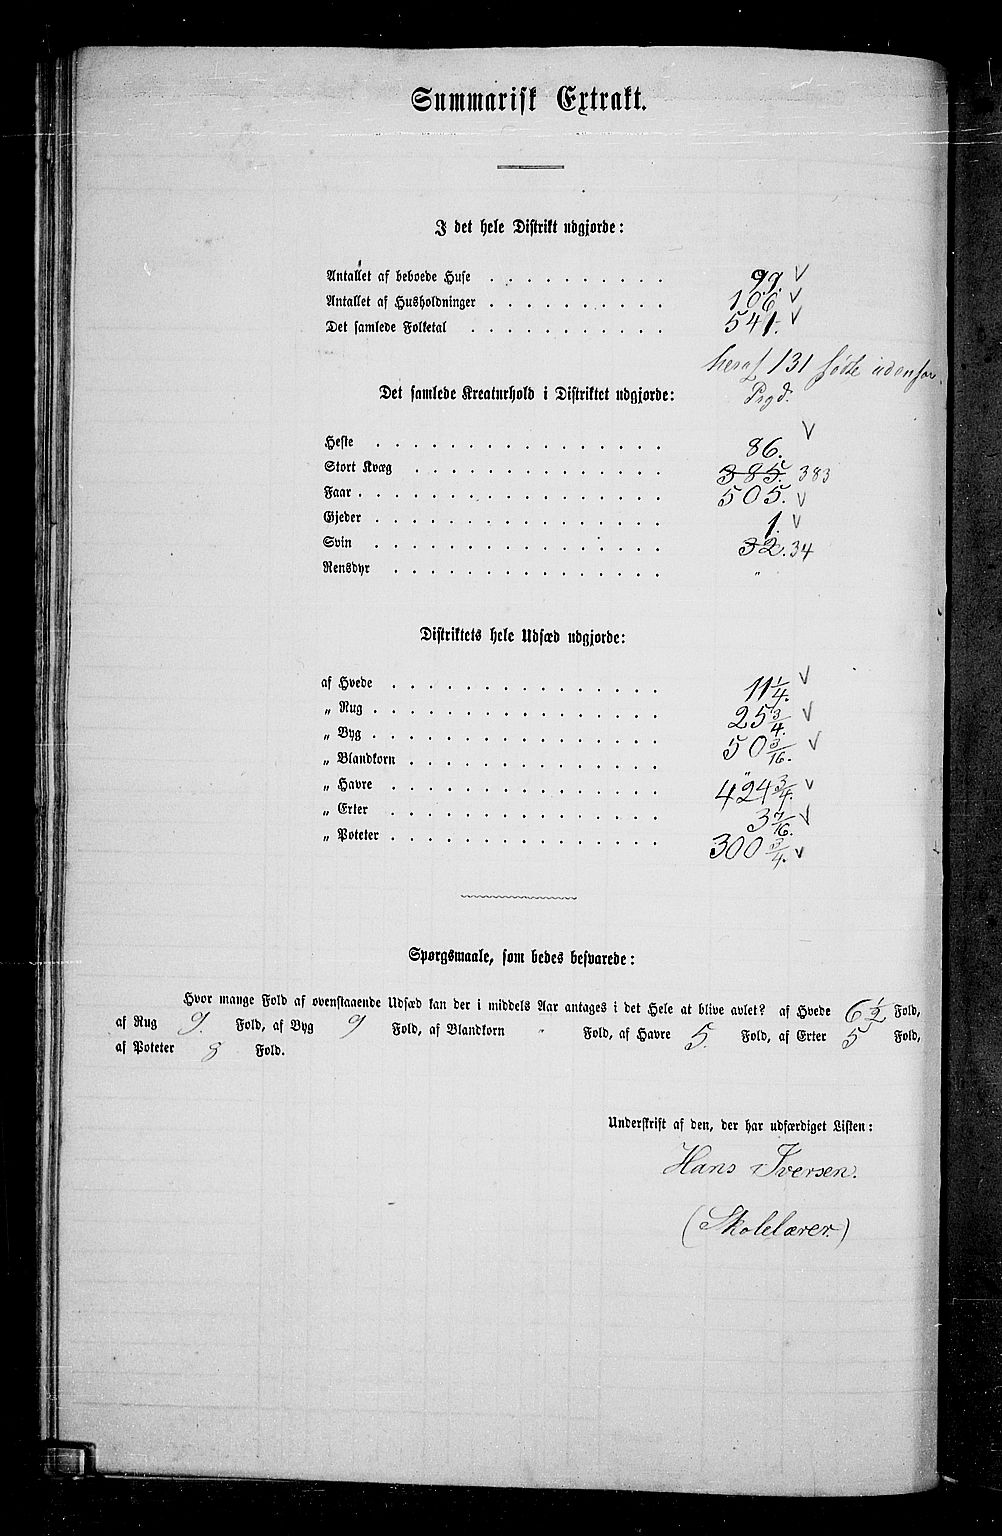 Summarisk Extrakt.
I det hele Distrikt udgjorde:
Antallet af beboede Huse . . . . . . . . . . 99. v
Antallet af Husholdninger . . . . . . . . . . 106 v
Det samlede Folketal . . . . . . . . . . . 541. v
heraf 131 fødte udenfor
Prgd.
Det samlede Kreaturhold i Distriktet udgjorde:
Heste . . . . . . . . . . . . . . . . 86. v
Stort Kvæg . . . . . . . . . . . . . . 385. 383
Faar . . . . . . . . . . . . . . . . . 505. v
Gjeder . . . . . . . . . . . . . . . . 1. v
Svin . . . . . . . . . . . . . . . . 32. 34
Rensdyr . . . . . . . . . . . . . . . "
Distriktets hele Udsæd udgjorde:
af Hvede . . . . . . . . . . . . . . . 11 1/4. v
„ Rug . . . . . . . . . . . . . . . . 25 3/4. v
„ Byg . . . . . . . . . . . . . . . . 50 3/16. v
„ Blandkorn . . . . . . . . . . . . . . "
„ Havre . . . . . . . . . . . . . . . 424 3/4. v
„ Erter . . . . . . . . . . . . . . . 3 7/16. v
„ Poteter . . . . . . . . . . . . . . . 300 3/4. v
Spørgsmaale, som bedes besvarede:
Hvor mange Fold af ovenstaaende Udsæd kan der i middels Aar antages i det Hele at blive avlet? af Hvede 6 1/2 Fold,
af Rug 9. Fold, af Byg 9 Fold, af Blandkorn " Fold, af Havre 5. Fold, af Erter 5 Fold,
af Poteter 8 Fold.
Underskrift af den, der har udfærdiget Listen:
Hans Iversen.
(Skolelærer.)